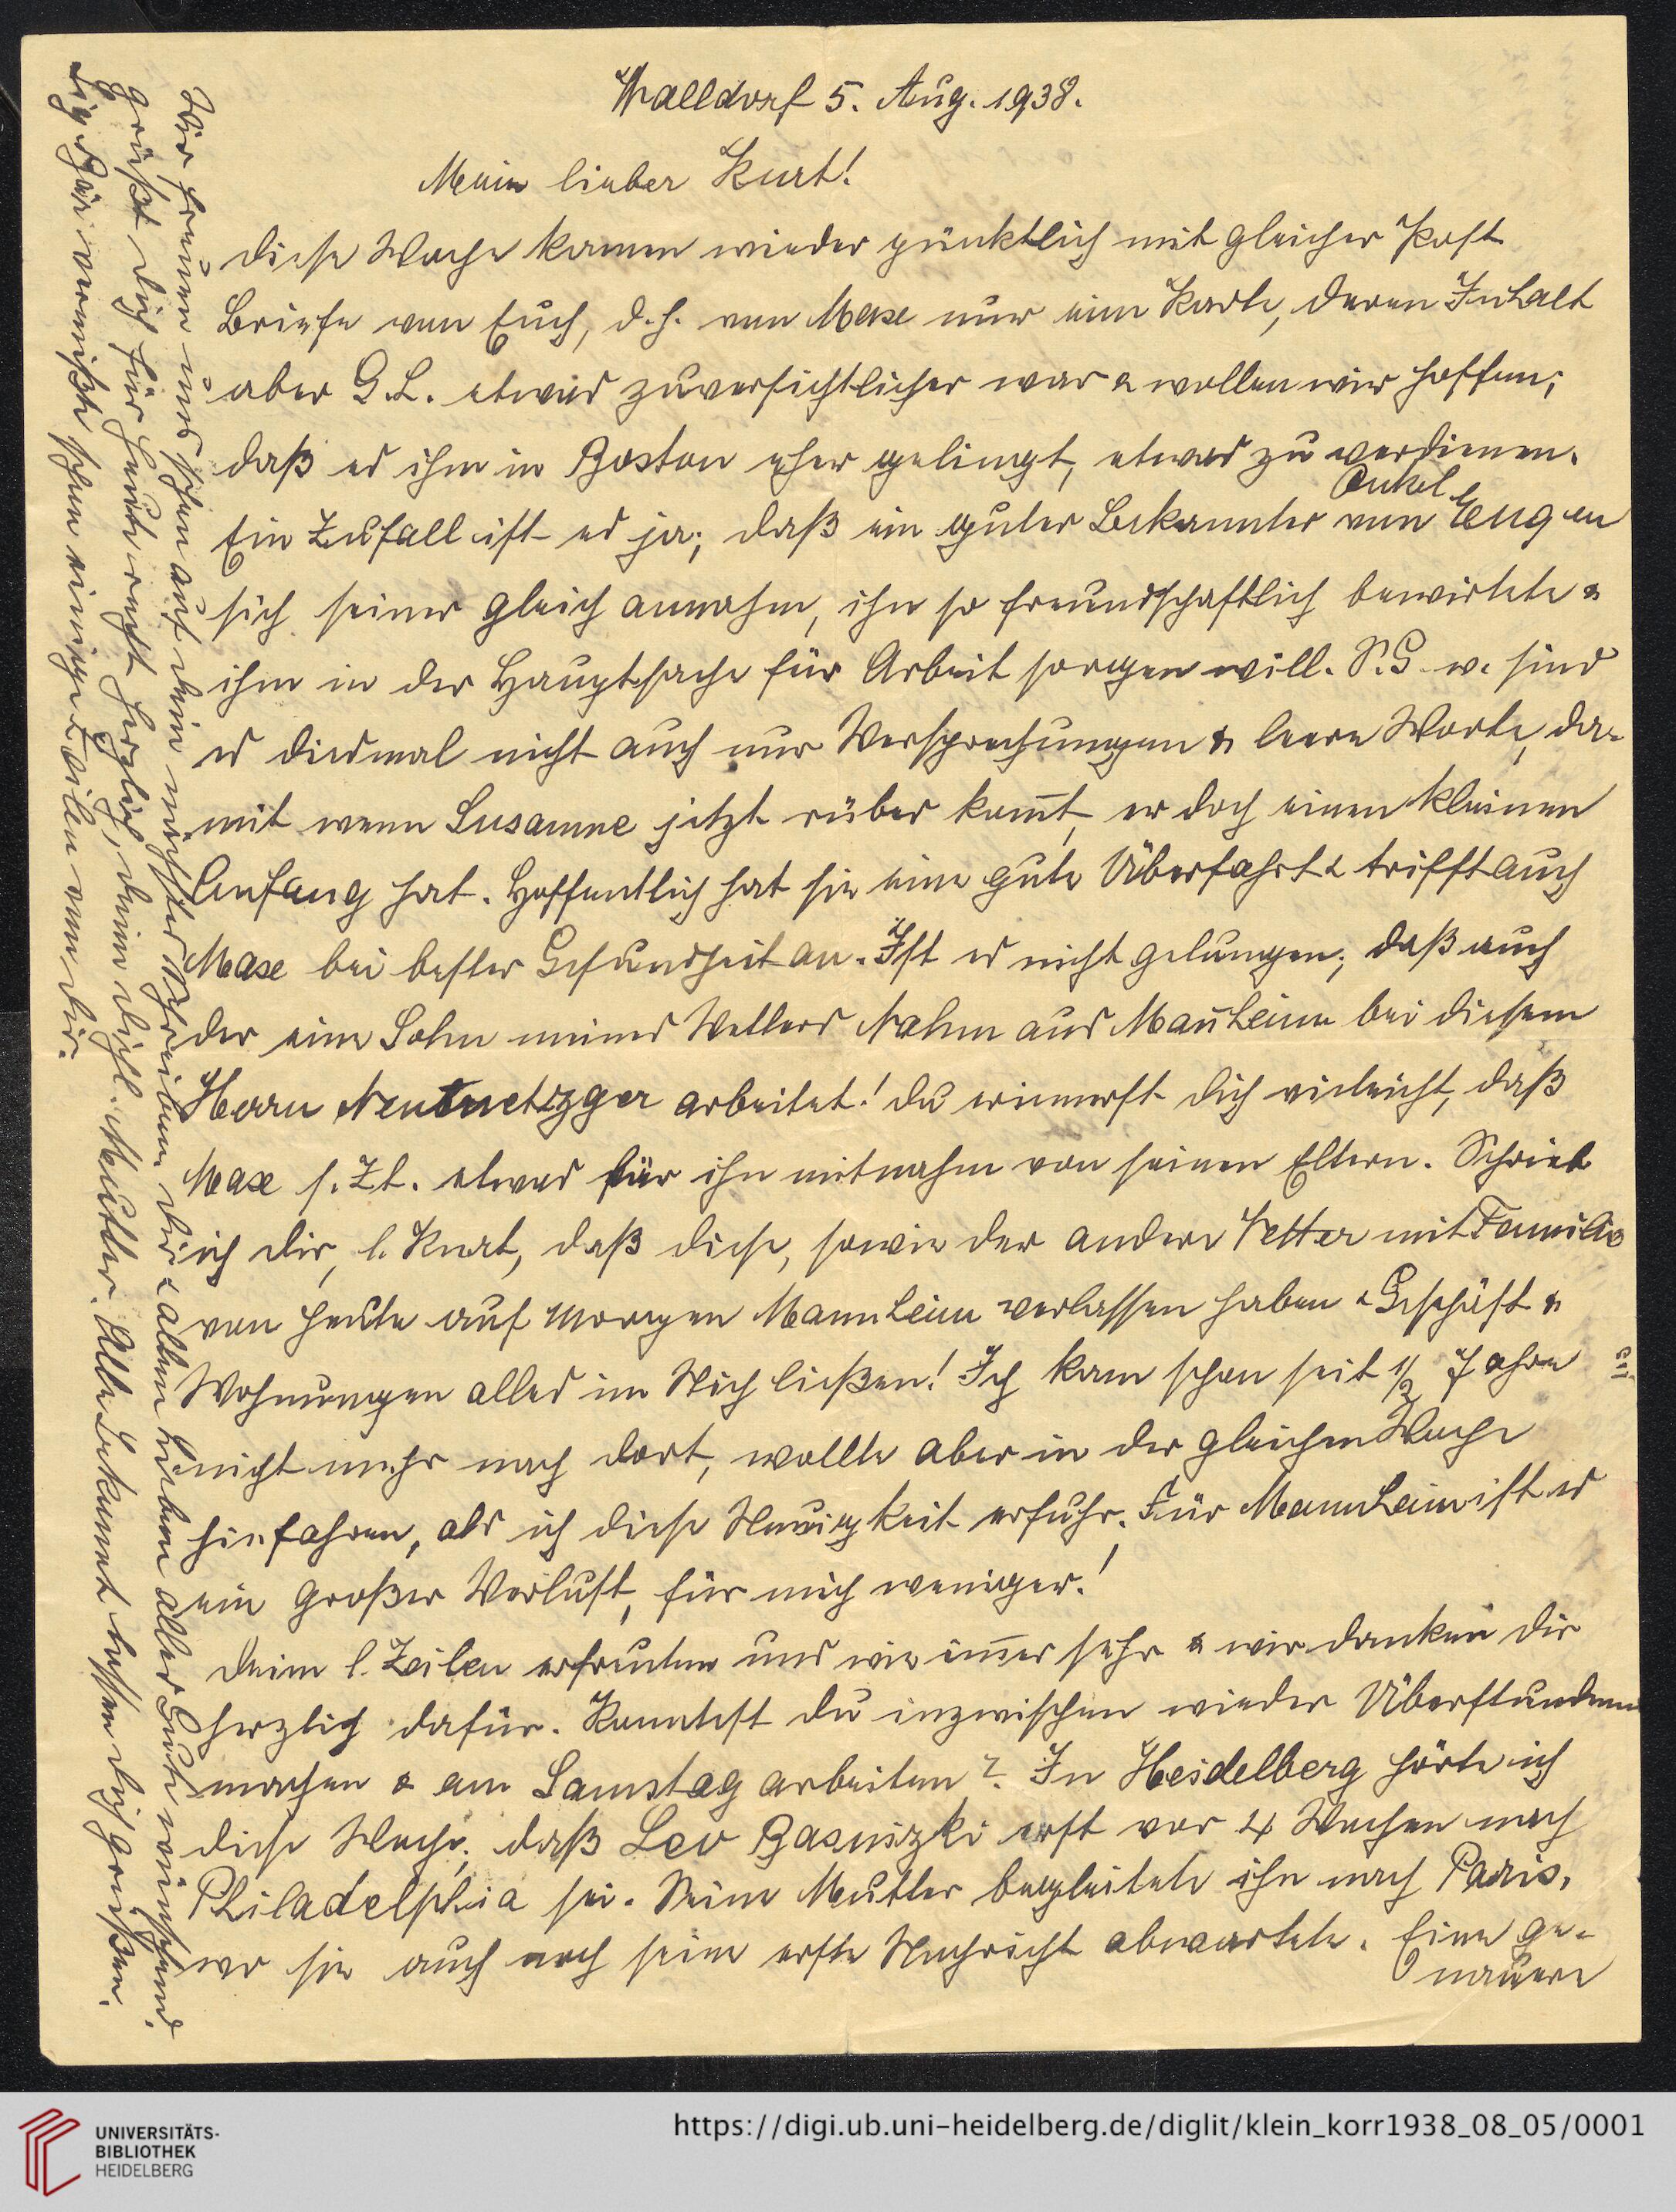 Walldorf 5. Aug. 1938.
Mein lieber Kurt!
Diese Woche kamen wieder pünktlich mit gleicher Post
Briefe von Euch, d.h. von Max nur eine Karte, deren Inhalt
aber G.L. etwas zuversichtlicher war & wollen wir hoffen,
daß es ihm in Boston eher gelingt, etwas zu verdienen.
Ein Zufall ist es ja, daß ein guter Bekannter von Onkel Eugen
sich seiner gleich annahm, ihn so freundschaftlich bewirtete &
ihm in der Hauptsache für Arbeit sorgen will. S. G. w. sind
es diesmal nicht auch nur Versprechungen & leere Worte, da-
mit wenn Susanne jetzt rüber kom̅t, er doch einen kleinen
Anfang hat. Hoffentlich hat sie eine gute Überfahrt & trifft auch
Max bei bester Gesundheit an. Ist es nicht gelungen, daß auch
der eine Sohn meines Vetters Nahm aus Man̅heim bei diesem
Herrn Neumetzger arbeitet! Du erinnerst Dich vieleicht, daß
Max s. Zt. etwas für ihn mitnahm von seinen Eltern. Schrieb
ich Dir, l. Kurt, daß diese, sowie der andere Vetter mit Familie
von heute auf morgen Mannheim verlassen haben & Geschäft &
Wohnungen alles im Stich ließen! Ich kam schon seit 1/2 Jahre
nicht mehr nach dort, wollte aber in der gleichen Woche
hinfahren, als ich diese Neuigkeit erfuhr. Für Mannheim ist es
ein großer Verlust, für mich weniger!
Deine l. Zeilen erfreuten uns wie im̅er sehr & wir danken Dir
herzlich dafür. Konntest Du inzwischen wieder Überstunden
machen & am Samstag arbeiten? In Heidelberg hörte ich
diese Woche, daß Leo Basnizki erst vor 4 Wochen nach
Philadelphia sei. Seine Mutter begleitete ihn nach Paris,
wo sie auch noch seine erste Nachricht abwartete. Eine ge-
nauere
Wir freuen uns schon auf Dein nächstes Schreiben. Dir & allen Lieben alles Gute wünschend,
grüßt Dich für heute recht herzlich, Deine Dichl. Mutter. Alle Bekannt lassen Dich grüßen.
vermißte schon einige Zeilen von Dir.